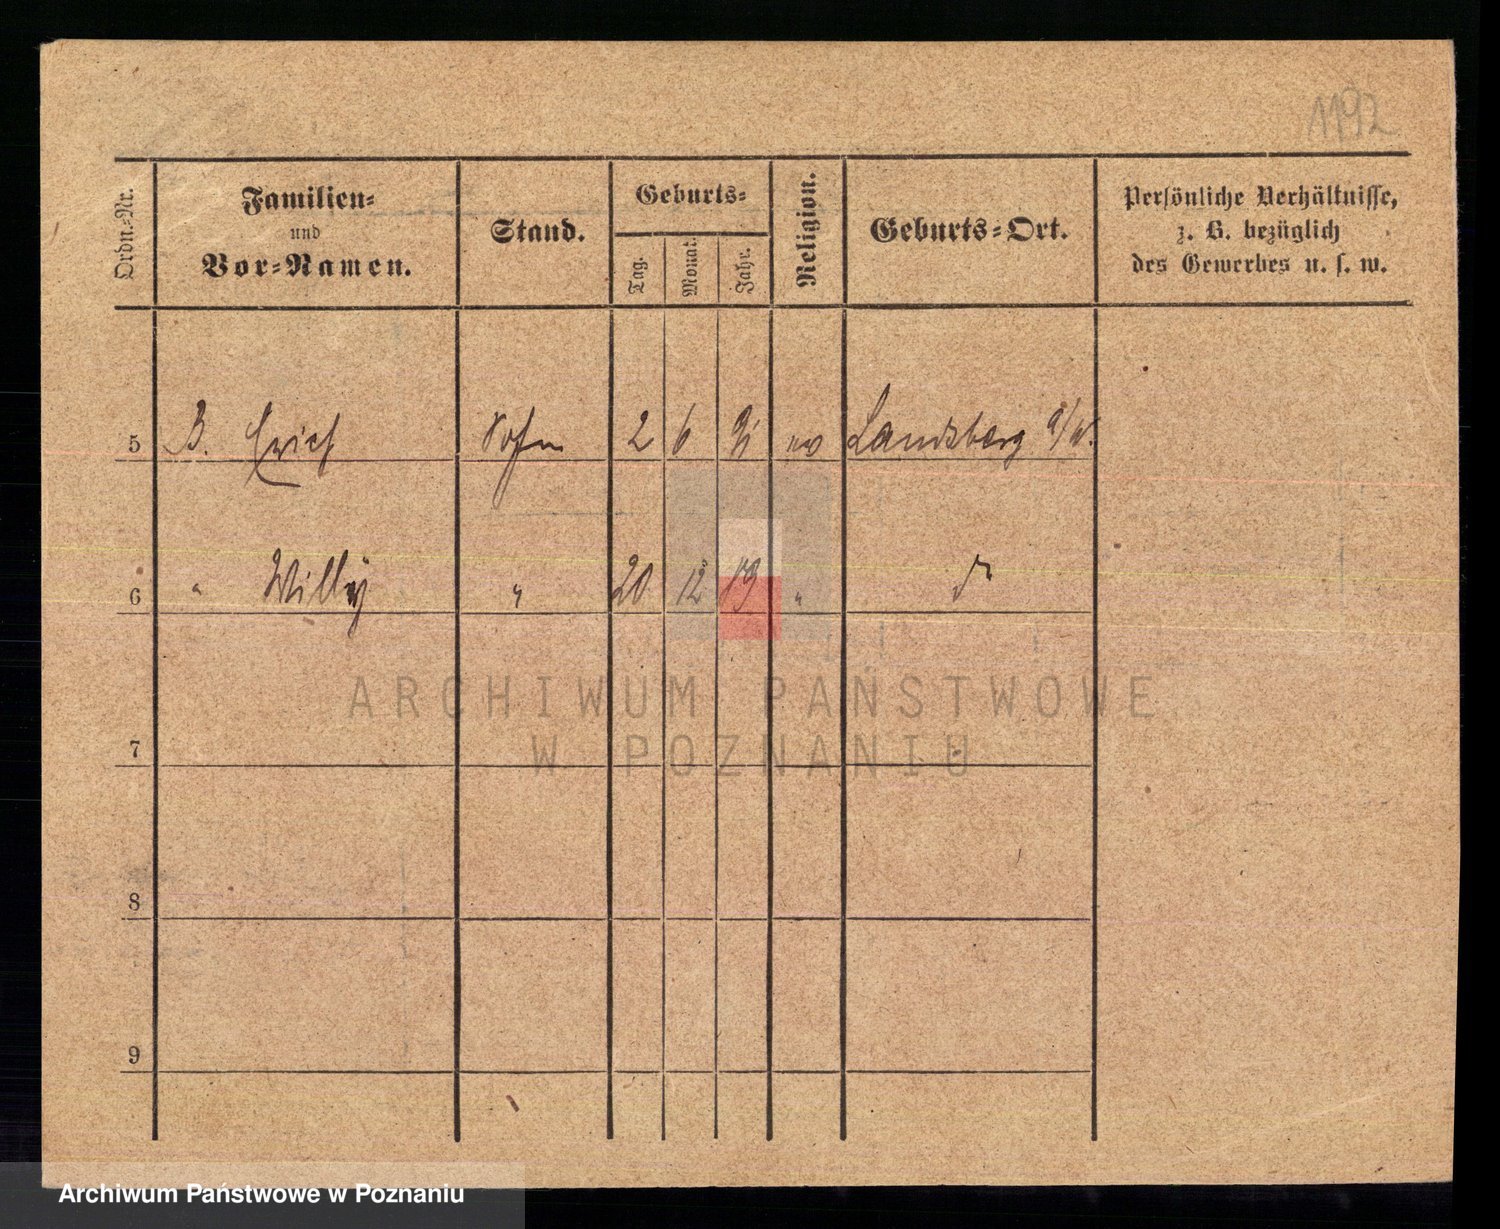 1192
Ordn.-Nr.
Familien-
und
Vor-Namen.
Stand.
Geburts-
Tag.
Monat.
Jahr.
Religion.
Geburts-Ort.
Persönliche Verhältnisse,
z. B. bezüglich
des Gewerbes u. s. w.
5 B. Erich Sohn 2 6 91 ev Landsberg a/W.
6 " Willy " 20 12 " do
ARCHIWUM PAŃSTWOWE
W POZNANIU
7
8
9
Archiwum Państwowe w Poznaniu